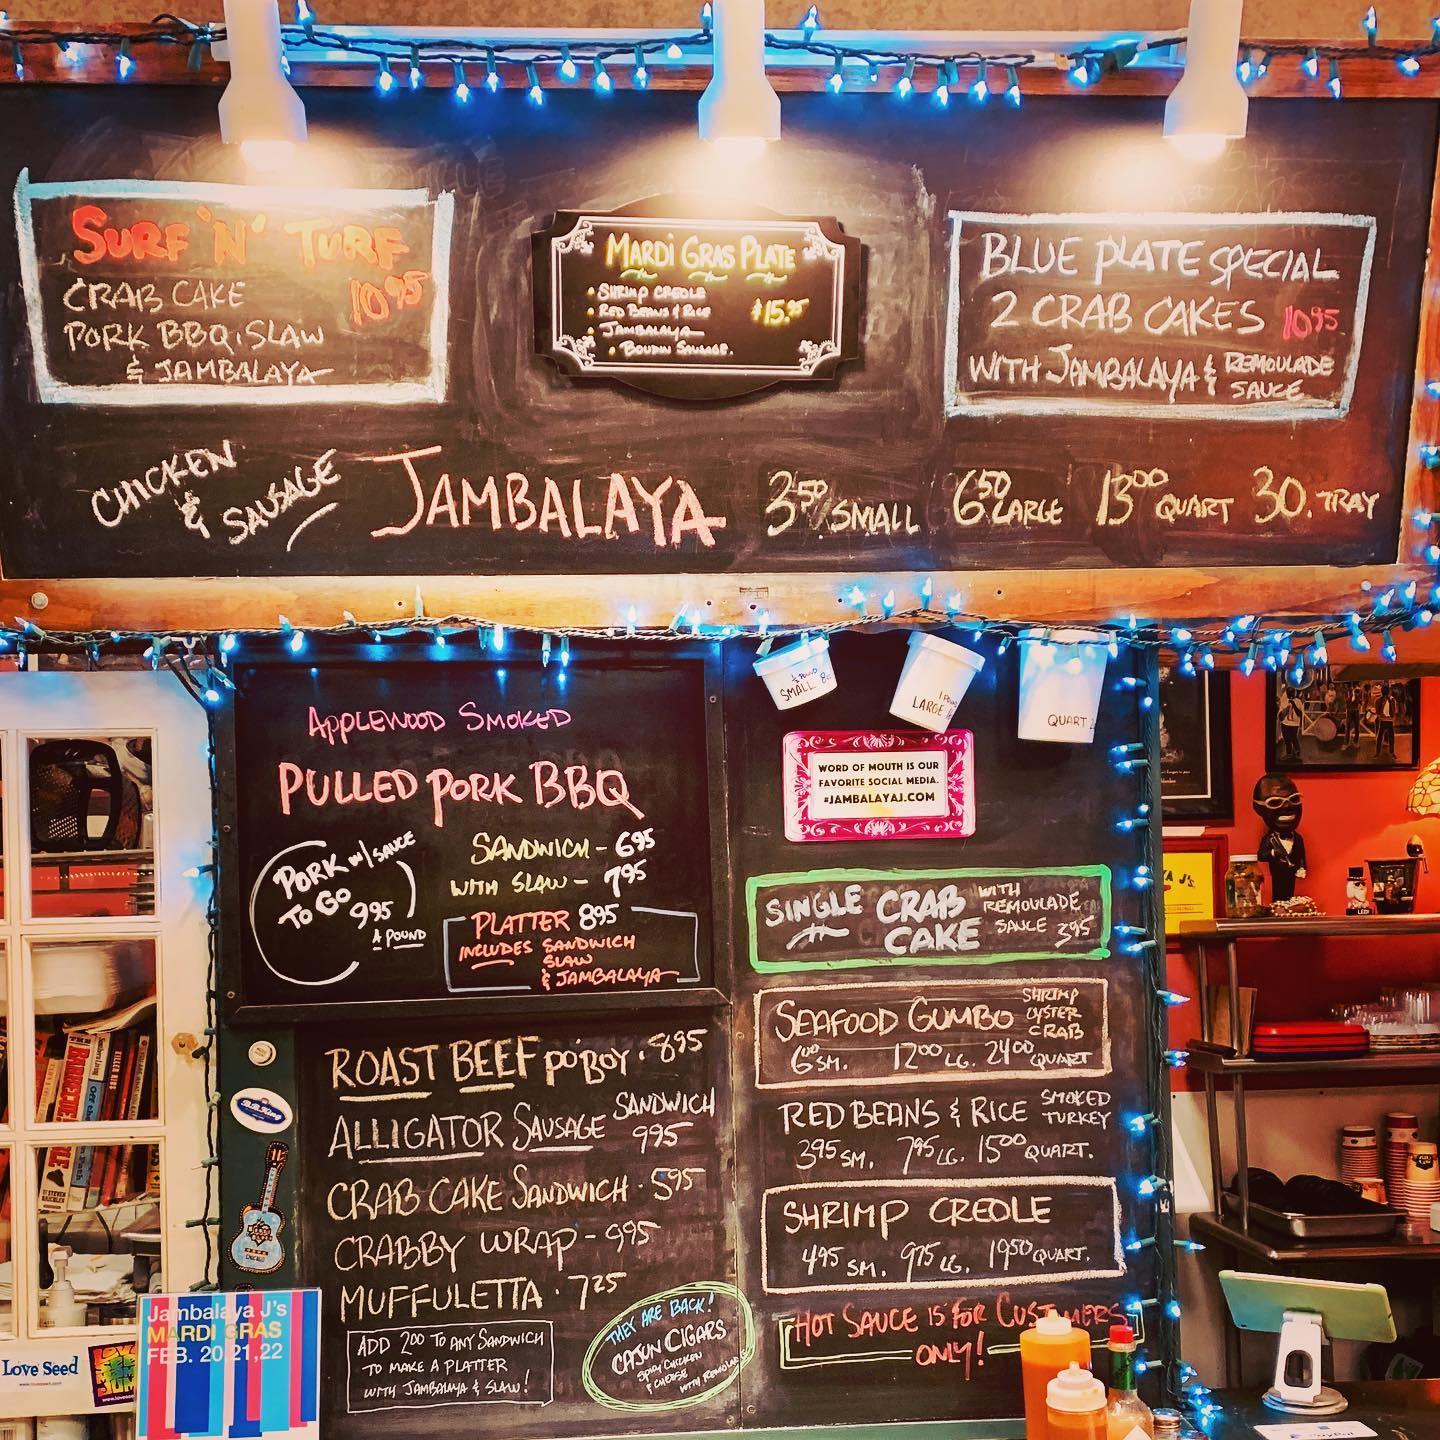 SURF 'N' TURF
CRAB CAKE 10.95
PORK BBQ, SLAW
& JAMBALAYA
MARDI GRAS PLATE
• SHRIMP CREOLE
• RED BEANS & RICE $15.95
• JAMBALAYA
• BOUDIN SAUSAGE.
BLUE PLATE SPECIAL
2 CRAB CAKES 10.95
WITH JAMBALAYA & REMOULADE
SAUCE
CHICKEN
& SAUSAGE JAMBALAYA 3.50/SMALL 6.50 LARGE 13.00 QUART 30. TRAY
SMALL 8oz
LARGE
QUART
WORD OF MOUTH IS OUR
FAVORITE SOCIAL MEDIA.
#JAMBALAYAJ.COM
APPLEWOOD SMOKED
PULLED PORK BBQ
PORK W/ SAUCE
TO GO 9.95
A POUND
SANDWICH - 6.95
WITH SLAW - 7.95
PLATTER 8.95
INCLUDES SANDWICH
SLAW
& JAMBALAYA
SINGLE CRAB CAKE WITH REMOULADE SAUCE 3.95
SEAFOOD GUMBO SHRIMP
OYSTER
CRAB
6.00 SM. 12.00 LG. 24.00 QUART
RED BEANS & RICE SMOKED TURKEY
3.95 SM. 7.95 LG. 15.00 QUART.
SHRIMP CREOLE
4.95 SM. 9.75 LG. 19.50 QUART.
HOT SAUCE IS FOR CUSTOMERS
ONLY!
ROAST BEEF PO'BOY . 8.95
ALLIGATOR SAUSAGE SANDWICH 9.95
CRAB CAKE SANDWICH . 5.95
CRABBY WRAP - 9.95
MUFFULETTA . 7.25
ADD 2.00 TO ANY SANDWICH
TO MAKE A PLATTER
WITH JAMBALAYA & SLAW!
THEY ARE BACK!
CAJUN CIGARS
SPICY CHICKEN
& CHEESE
WITH
B.B. King
Jambalaya J's
MARDI GRAS
FEB. 20, 21, 22
Love Seed
PayPal